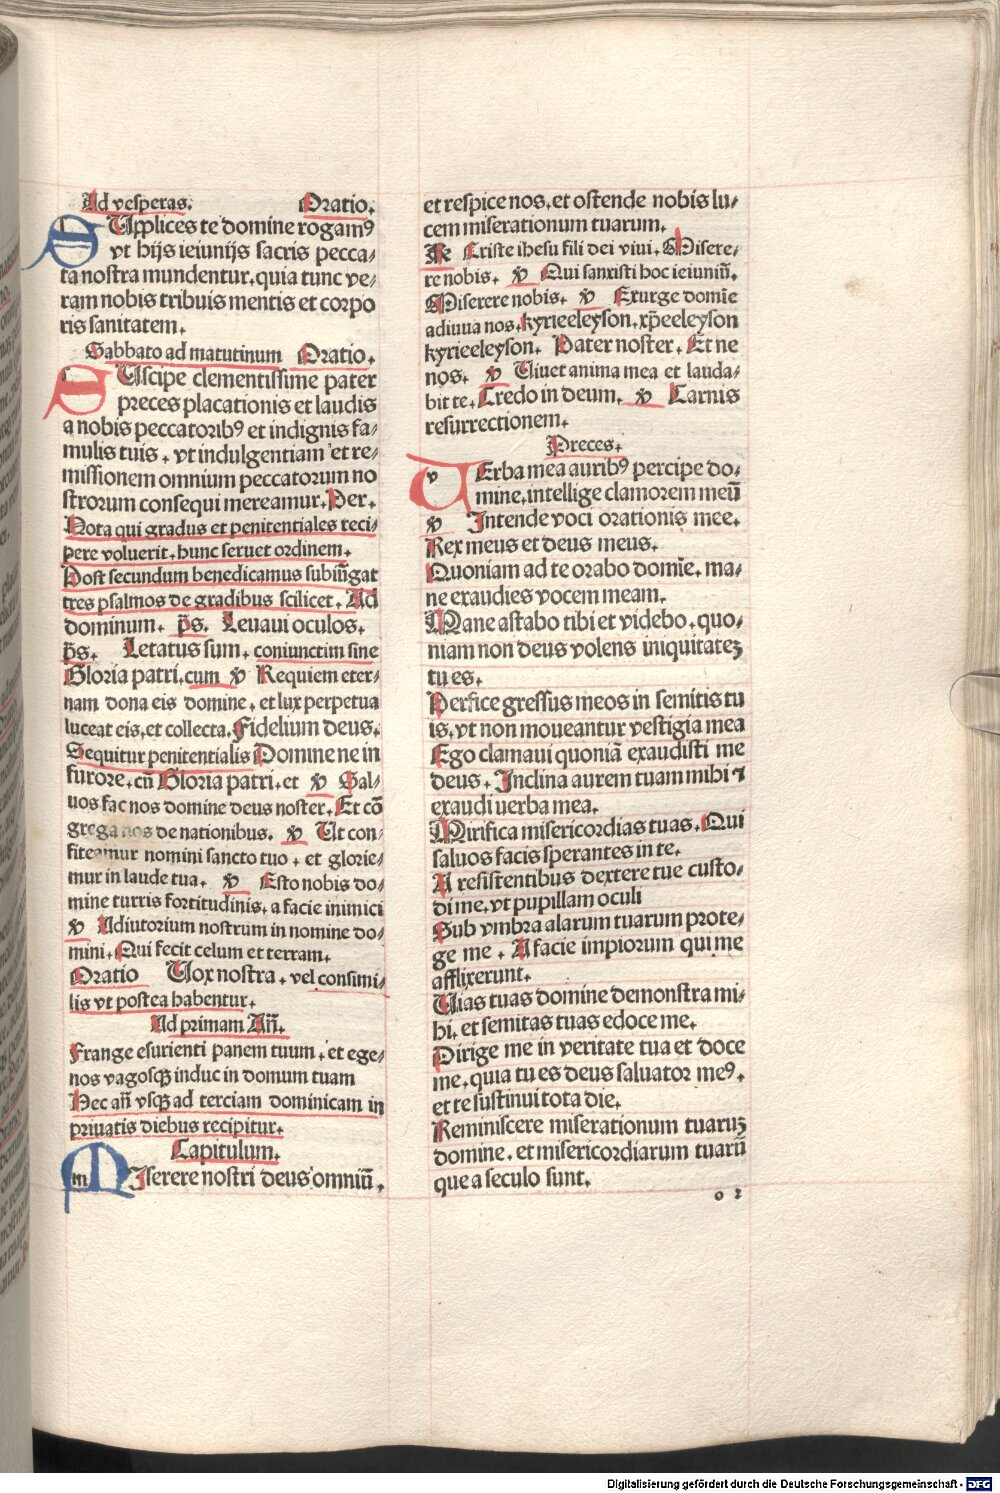 Ad vesperas. Oratio.
SUpplices te domine rogamꝰ
vt hijs ieiunijs sacris pecca⸗
ta nostra mundentur. quia tunc ve⸗
ram nobis tribuis mentis et corpo
ris sanitatem.
Sabbato ad matutinum Oratio.
SUscipe clementissime pater
preces placationis et laudis
a nobis peccatoribꝰ et indignis fa⸗
mulis tuis. vt indulgentiam et re⸗
missionem omnium peccatorum no
strorum consequi mereamur. Per.
Nota qui gradus et penitentiales reci⸗
pere voluerit. hunc seruet ordinem.
Post secundum benedicamus subiūgat
tres psalmos de gradibus scilicet. Ad
dominum. p̄s. Leuaui oculos.
p̄s. Letatus sum. coniunctim sine
Gloria patri. cum ℣ Requiem eter⸗
nam dona eis domine. et lux perpetua
luceat eis. et collecta. Fidelium deus.
Sequitur penitentialis Domine ne in
furore. cū Gloria patri. et ℣ Sal⸗
uos fac nos domine deus noster. Et cō
grega nos de nationibus. ℣ Ut con⸗
fiteamur nomini sancto tuo. et glorie⸗
mur in laude tua. ℣ Esto nobis do⸗
mine turris fortitudinis. a facie inimici
℣ Adiutorium nostrum in nomine do⸗
mini. Qui fecit celum et terram.
Oratio Uox nostra. vel consimi⸗
lis vt postea habentur.
Ad primam Añ.
Frange esurienti panem tuum. et ege⸗
nos vagosqꝫ induc in domum tuam
Hec añ vsqꝫ ad terciam dominicam in
priuatis diebus recipitur.
Capitulum.
m MIserere nostri deus omniū.
et respice nos. et ostende nobis lu⸗
cem miserationum tuarum.
℟ Criste ihesu fili dei viui. Misere⸗
re nobis. ℣ Qui sanxisti hoc ieiuniū.
Miserere nobis. ℣ Exurge domīe
adiuua nos. kyrieeleyson. xp̄eeleyson
kyrieeleyson. Pater noster. Et ne
nos. ℣ Uiuet anima mea et lauda⸗
bit te. Credo in deum. ℣ Carnis
resurrectionem.
Preces.
v UErba mea auribꝰ percipe do⸗
mine. intellige clamorem meū
℣ Intende voci orationis mee.
Rex meus et deus meus.
Quoniam ad te orabo domīe. ma⸗
ne exaudies vocem meam.
Mane astabo tibi et videbo. quo⸗
niam non deus volens iniquitateꝫ
tu es.
Perfice gressus meos in semitis tu
is. vt non moueantur vestigia mea
Ego clamaui quoniā exaudisti me
deus. Inclina aurem tuam mihi ⁊
exaudi uerba mea.
Mirifica misericordias tuas. Qui
saluos facis sperantes in te.
A resistentibus dextere tue custo⸗
di me. vt pupillam oculi
Sub vmbra alarum tuarum prote⸗
ge me. A facie impiorum qui me
afflixerunt.
Uias tuas domine demonstra mi⸗
hi. et semitas tuas edoce me.
Dirige me in veritate tua et doce
me. quia tu es deus saluator meꝰ.
et te sustinui tota die.
Reminiscere miserationum tuarꝫ
domine. et misericordiarum tuarū
que a seculo sunt.
o 2
Digitalisierung gefördert durch die Deutsche Forschungsgemeinschaft - DFG